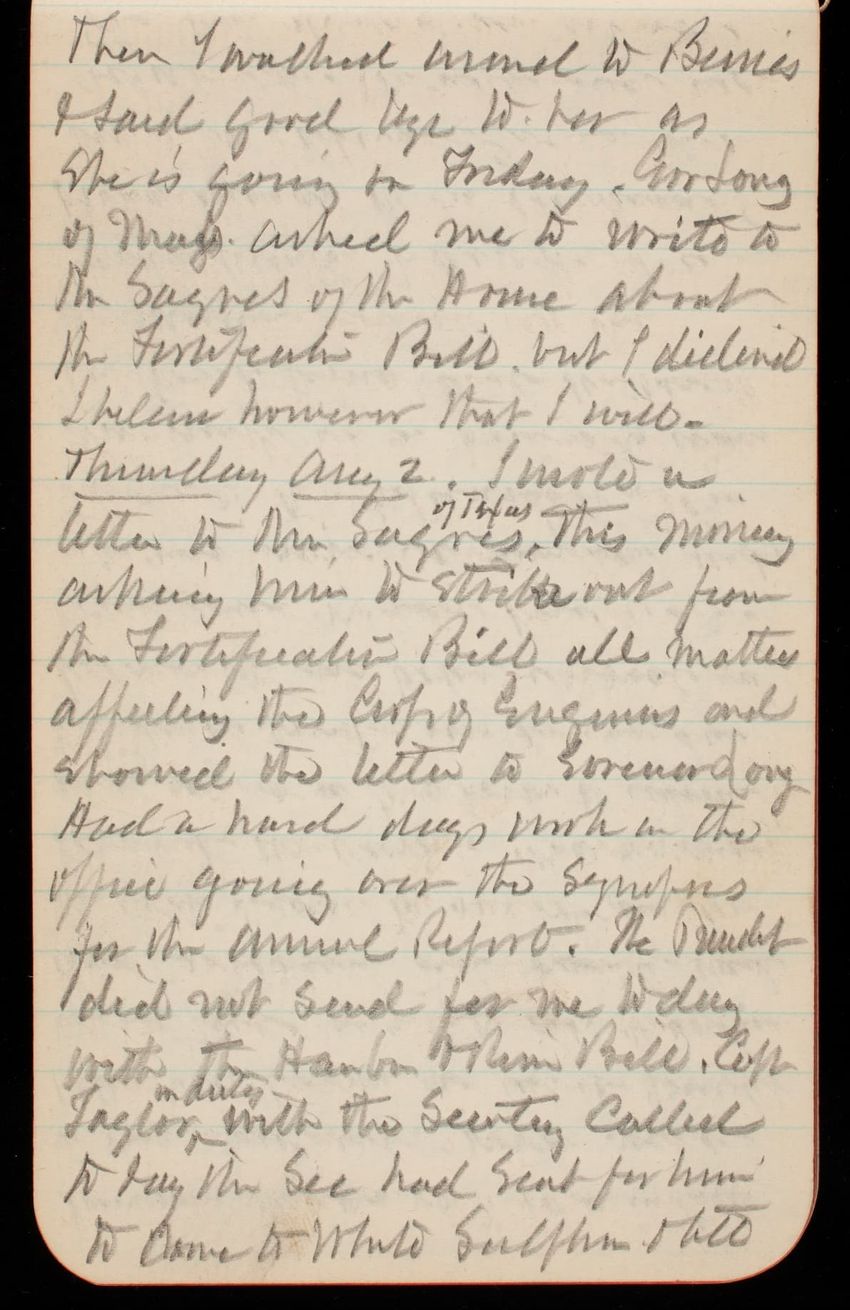 Then I walked around to Bessies
& said good bye to her as
She is going on Friday. Gov Long
of Mass. asked me to write to
the Sayres of the House about
the Fortification Bill. but I declined
I believe however that I will.
Thursday Aug 2. I wrote a
letter to Mr. Sayres, of Texas This morning
asking him to strike out from
the Fortification Bill all matter
affecting the Corps of Engineers and
showed the letter to Governor Long
Had a hard days work in the
office going over the Synopsis
for the Annual Report. The Presidt
did not send for me to day
with the Harbor & River Bill. Capt
Taylor on duty with the Secretary Called
to day the Sec had Sent for him
to come to White Sulphur